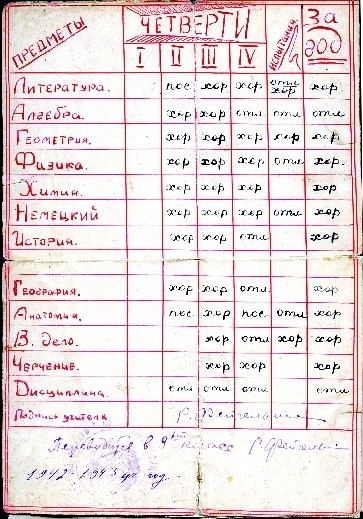 ПРЕДМЕТЫ ЧЕТВЕРТИ Испытания. За год
I II III IV
Литература. пос хор хор отл хор хор
Алгебра. хор хор отл отл отл
Геометрия. хор хор хор хор хор
Физика. хор хор хор отл хор
Химия. хор хор хор хор
Немецкий хор хор хор отл хор
История. хор хор отл хор
География. хор хор отл хор
Анатомия. пос хор пос отл хор
В. дело. хор отл хор хор
Черчение. хор хор хор
Дисциплина. отл отл отл отл
Подпись учителя
Переводится в 9 класс
1942-1943 уч год.